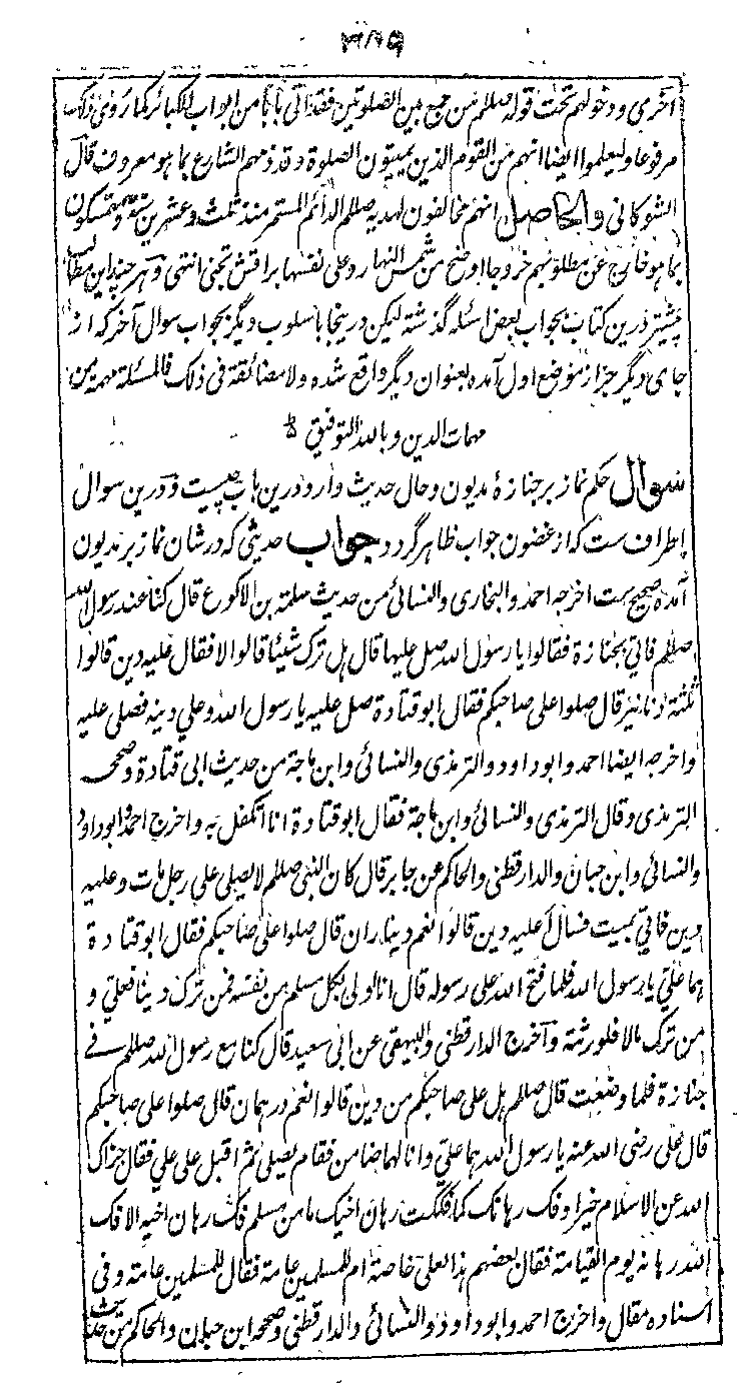 ۳۸۹
اخری و دخولهم تحت قوله صللم من جمع بین الصلوتین فقد اتی بابا من ابواب الکبائر کما روی ذلک
مرفوعا ولیعلموا ایضا انهم من القوم الذین یمیتون الصلوة وقد ذمهم الشارع بما هو معروف قال
الشوکانی والحاصل انهم مخالفون لهدیه صللم الدائم المستمر منذ ثلث وعشرین سنة ومتمسکون
بما هو خارج عن مطلوبهم خروجا اوضح من شمس النهار وعلی نفسها براقش تجنی انتهی وهر چند این مطالب
پیشتر درین کتاب بجواب بعض اسئله گذشته لیکن درینجا باسلوب دیگر بجواب سوال آخر که از
جای دیگر جز از موضع اول آمده بعنوان دیگر واقع شده ولا مضائقة فی ذلک فالمسئلة مهمة من
مهمات الدین وبالله التوفیق
سوال حکم نماز بر جنازهٔ مدیون وحال حدیث وارد درین باب چیست ودرین سوال
اطراف ست که از غضون جواب ظاهر گردد جواب حدیثی که در شان نماز بر مدیون
آمده صحیح ست اخرجه احمد والبخاری والنسائی من حدیث سلمة بن الاکوع قال کنا عند رسول الله
صللم فاتی بجنازة فقالوا یا رسول الله صل علیها قال هل ترک شیئا قالوا لا فقال علیه دین قالوا
ثلثة دنانیر قال صلوا علی صاحبکم فقال ابو قتادة صل علیه یا رسول الله وعلی دینه فصلی علیه
واخرجه ایضا احمد وابو داود والترمذی والنسائی وابن ماجة من حدیث ابی قتادة وصححه
الترمذی وقال الترمذی والنسائی وابن ماجة فقال ابو قتادة انا اتکفل به واخرج احمد وابو داود
والنسائی وابن حبان والدارقطنی والحاکم عن جابر قال کان النبی صللم لا یصلی علی رجل مات وعلیه
دین فاتی بمیت فسال أعلیه دین قالوا نعم دیناران قال صلوا علی صاحبکم فقال ابو قتادة
هما علی یا رسول الله فلما فتح الله علی رسوله قال انا اولی بکل مسلم من نفسه فمن ترک دینا فعلی و
من ترک مالا فلورثته وآخرج الدارقطنی والبیهقی عن ابی سعید قال کنا مع رسول الله صللم فے
جنازة فلما وضعت قال صللم هل علی صاحبکم من دین قالوا نعم درهمان قال صلوا علی صاحبکم
قال علی رضی الله عنه یا رسول الله هما علی وانا لهما ضامن فقام یصلی ثم اقبل علی علی فقال جزاک
الله عن الاسلام خیرا وفک رهانک کما فککت رهان اخیک ما من مسلم فک رهان اخیه الا فک
الله رهانه یوم القیامة فقال بعضهم هذا لعلی خاصة ام للمسلمین عامة فقال للمسلمین عامة وفی
اسناده مقال واخرج احمد وابو داود والنسائی والدارقطنی وصححه ابن حبان والحاکم من حدیث